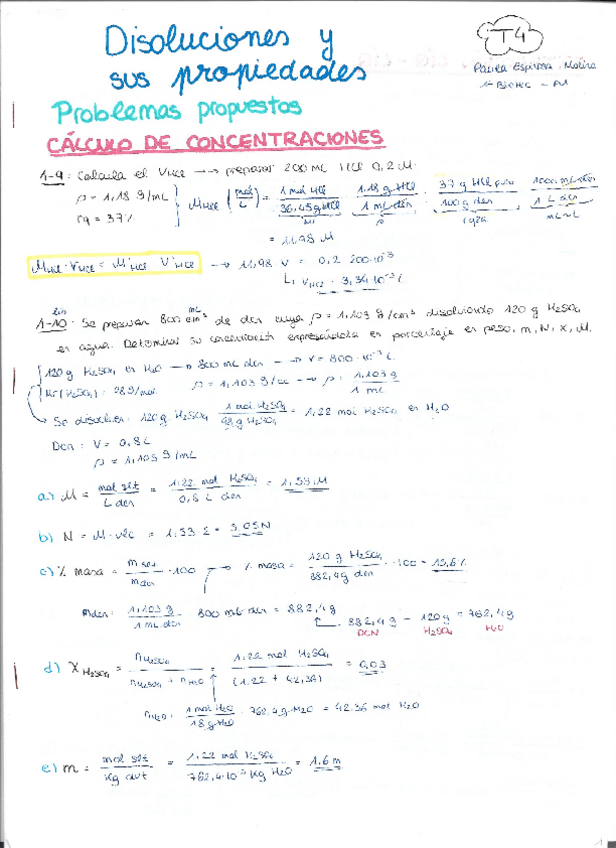 Disoluciones y
sus propiedades
T4
Paula Espinosa Molina
1º BIOTEC - A1
Problemas propuestos
CÁLCULO DE CONCENTRACIONES
1-9: Calcula el VHCl → preparar 200 mL HCl 0,2 M.
ρ = 1,18 g/mL
rq = 37%
MHCl (mol/L) = 1 mol HCl / 36,45 g HCl · 1,18 g HCl / 1 mL dcn · 37 g HCl puro / 100 g dcn · 1000 mL dcn / 1 L dcn
M ρ rqza mL-L
= 11,98 M
MHCl · VHCl = M'HCl V'HCl → 11,98 · V = 0,2 · 200·10⁻³
VHCl = 3,34·10⁻³ L
1-10: Se preparan 800 cm³ de dcn cuya ρ = 1,103 g/cm³ disolviendo 120 g H₂SO₄
mL
en agua. Determinar su concentración expresándola en porcentaje en peso, m, N, X, M.
120 g H₂SO₄ en H₂O → 800 mL dcn → V = 800·10⁻³ L
Mr (H₂SO₄) = 98 g/mol ρ = 1,103 g/cc → ρ = 1,103 g / 1 mL
Se disuelven: 120 g H₂SO₄ · 1 mol H₂SO₄ / 98 g H₂SO₄ = 1,22 mol H₂SO₄ en H₂O
Dcn: V = 0,8 L
ρ = 1,103 g/mL
a) M = mol slt / L dcn = 1,22 mol H₂SO₄ / 0,8 L dcn = 1,53 M
b) N = M · vlc = 1,53 · 2 = 3,05 N
c) % masa = m slt / mdcn · 100 → % masa = 120 g H₂SO₄ / 882,4 g dcn · 100 = 13,6 %
mdcn = 1,103 g / 1 mL dcn · 800 mL dcn = 882,4 g
882,4 g - 120 g = 762,4 g
DCN H₂SO₄ H₂O
d) XH₂SO₄ = nH₂SO₄ / nH₂SO₄ + nH₂O = 1,22 mol H₂SO₄ / (1,22 + 42,36) = 0,03
nH₂O = 1 mol H₂O / 18 g H₂O · 762,4 g H₂O = 42,36 mol H₂O
e) m = mol slt / Kg dvt = 1,22 mol H₂SO₄ / 762,4·10⁻³ Kg H₂O = 1,6 m